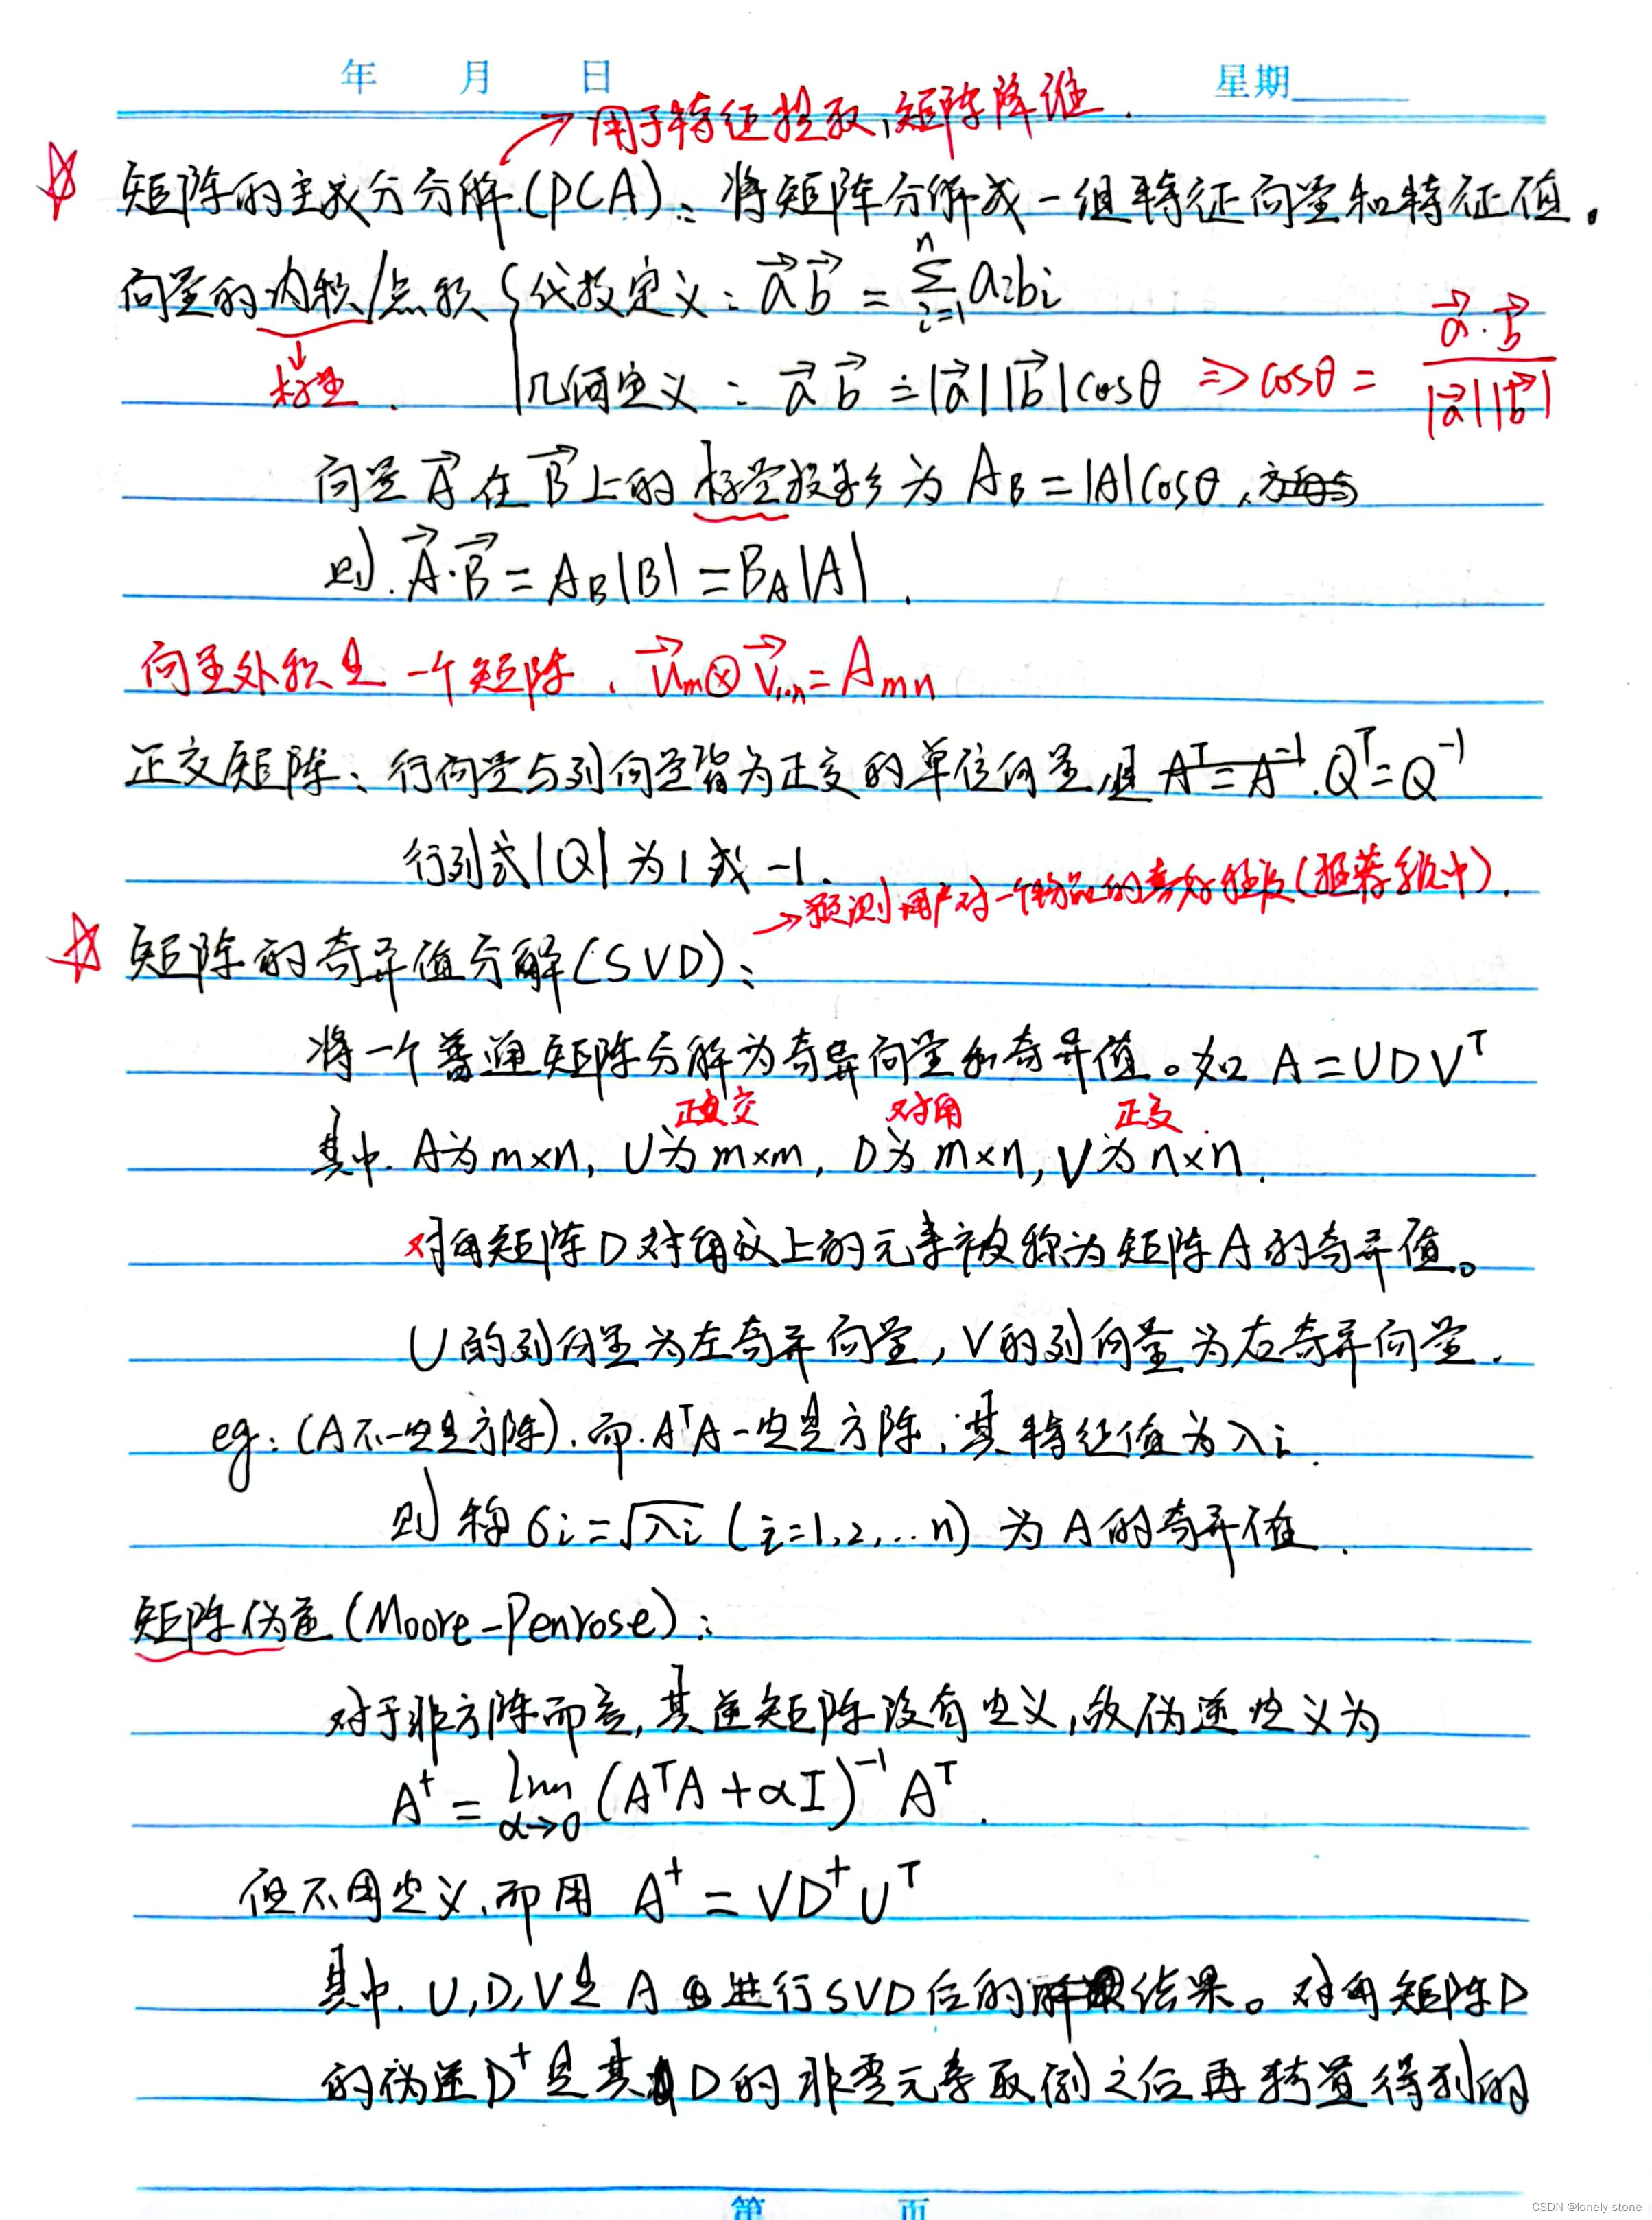 年 月 日 星期
→用于特征提取、矩阵降维.
☆ 矩阵的主成分分解(PCA): 将矩阵分解成一组特征向量和特征值。
向量的内积/点积 { 代数定义: a⃗ b⃗ = ∑ᵢ₌₁ⁿ aᵢbᵢ
↓标量. 几何定义: a⃗ b⃗ = |a⃗||b⃗|cosθ ⇒ cosθ = (a⃗·b⃗)/(|a⃗||b⃗|)
向量 A⃗ 在 B⃗ 上的标量投影为 A_B = |A|cosθ,
则. A⃗·B⃗ = A_B|B| = B_A|A|.
向量外积是一个矩阵、u⃗ₘ⊗v⃗₁·ₙ = Aₘₙ
正交矩阵: 行向量与列向量皆为正交的单位向量,且 Aᵀ=A⁻¹. Qᵀ=Q⁻¹
行列式|Q|为1或-1.
→预测用户对一个物品的喜好程度(推荐系统中).
☆ 矩阵的奇异值分解(SVD):
将一个普通矩阵分解为奇异向量和奇异值。如 A=UDVᵀ
正交 对角 正交
其中. A为m×n, U为m×m, D为m×n, V为n×n.
对角矩阵D对角线上的元素被称为矩阵A的奇异值。
U的列向量为左奇异向量, V的列向量为右奇异向量.
eg: (A不一定是方阵). 而. AᵀA一定是方阵, 其特征值为λi.
则称 σi=√λi (i=1,2,...n) 为A的奇异值.
矩阵伪逆(Moore-Penrose):
对于非方阵而言, 其逆矩阵没有定义, 故伪逆定义为
A⁺ = lim α→0 (AᵀA+αI)⁻¹Aᵀ.
但不用定义、而用 A⁺ = VD⁺Uᵀ
其中. U,D,V是A进行SVD后的结果。对角矩阵D
的伪逆D⁺是其D的非零元素取倒之后再转置得到的
第 页
CSDN @lonely-stone